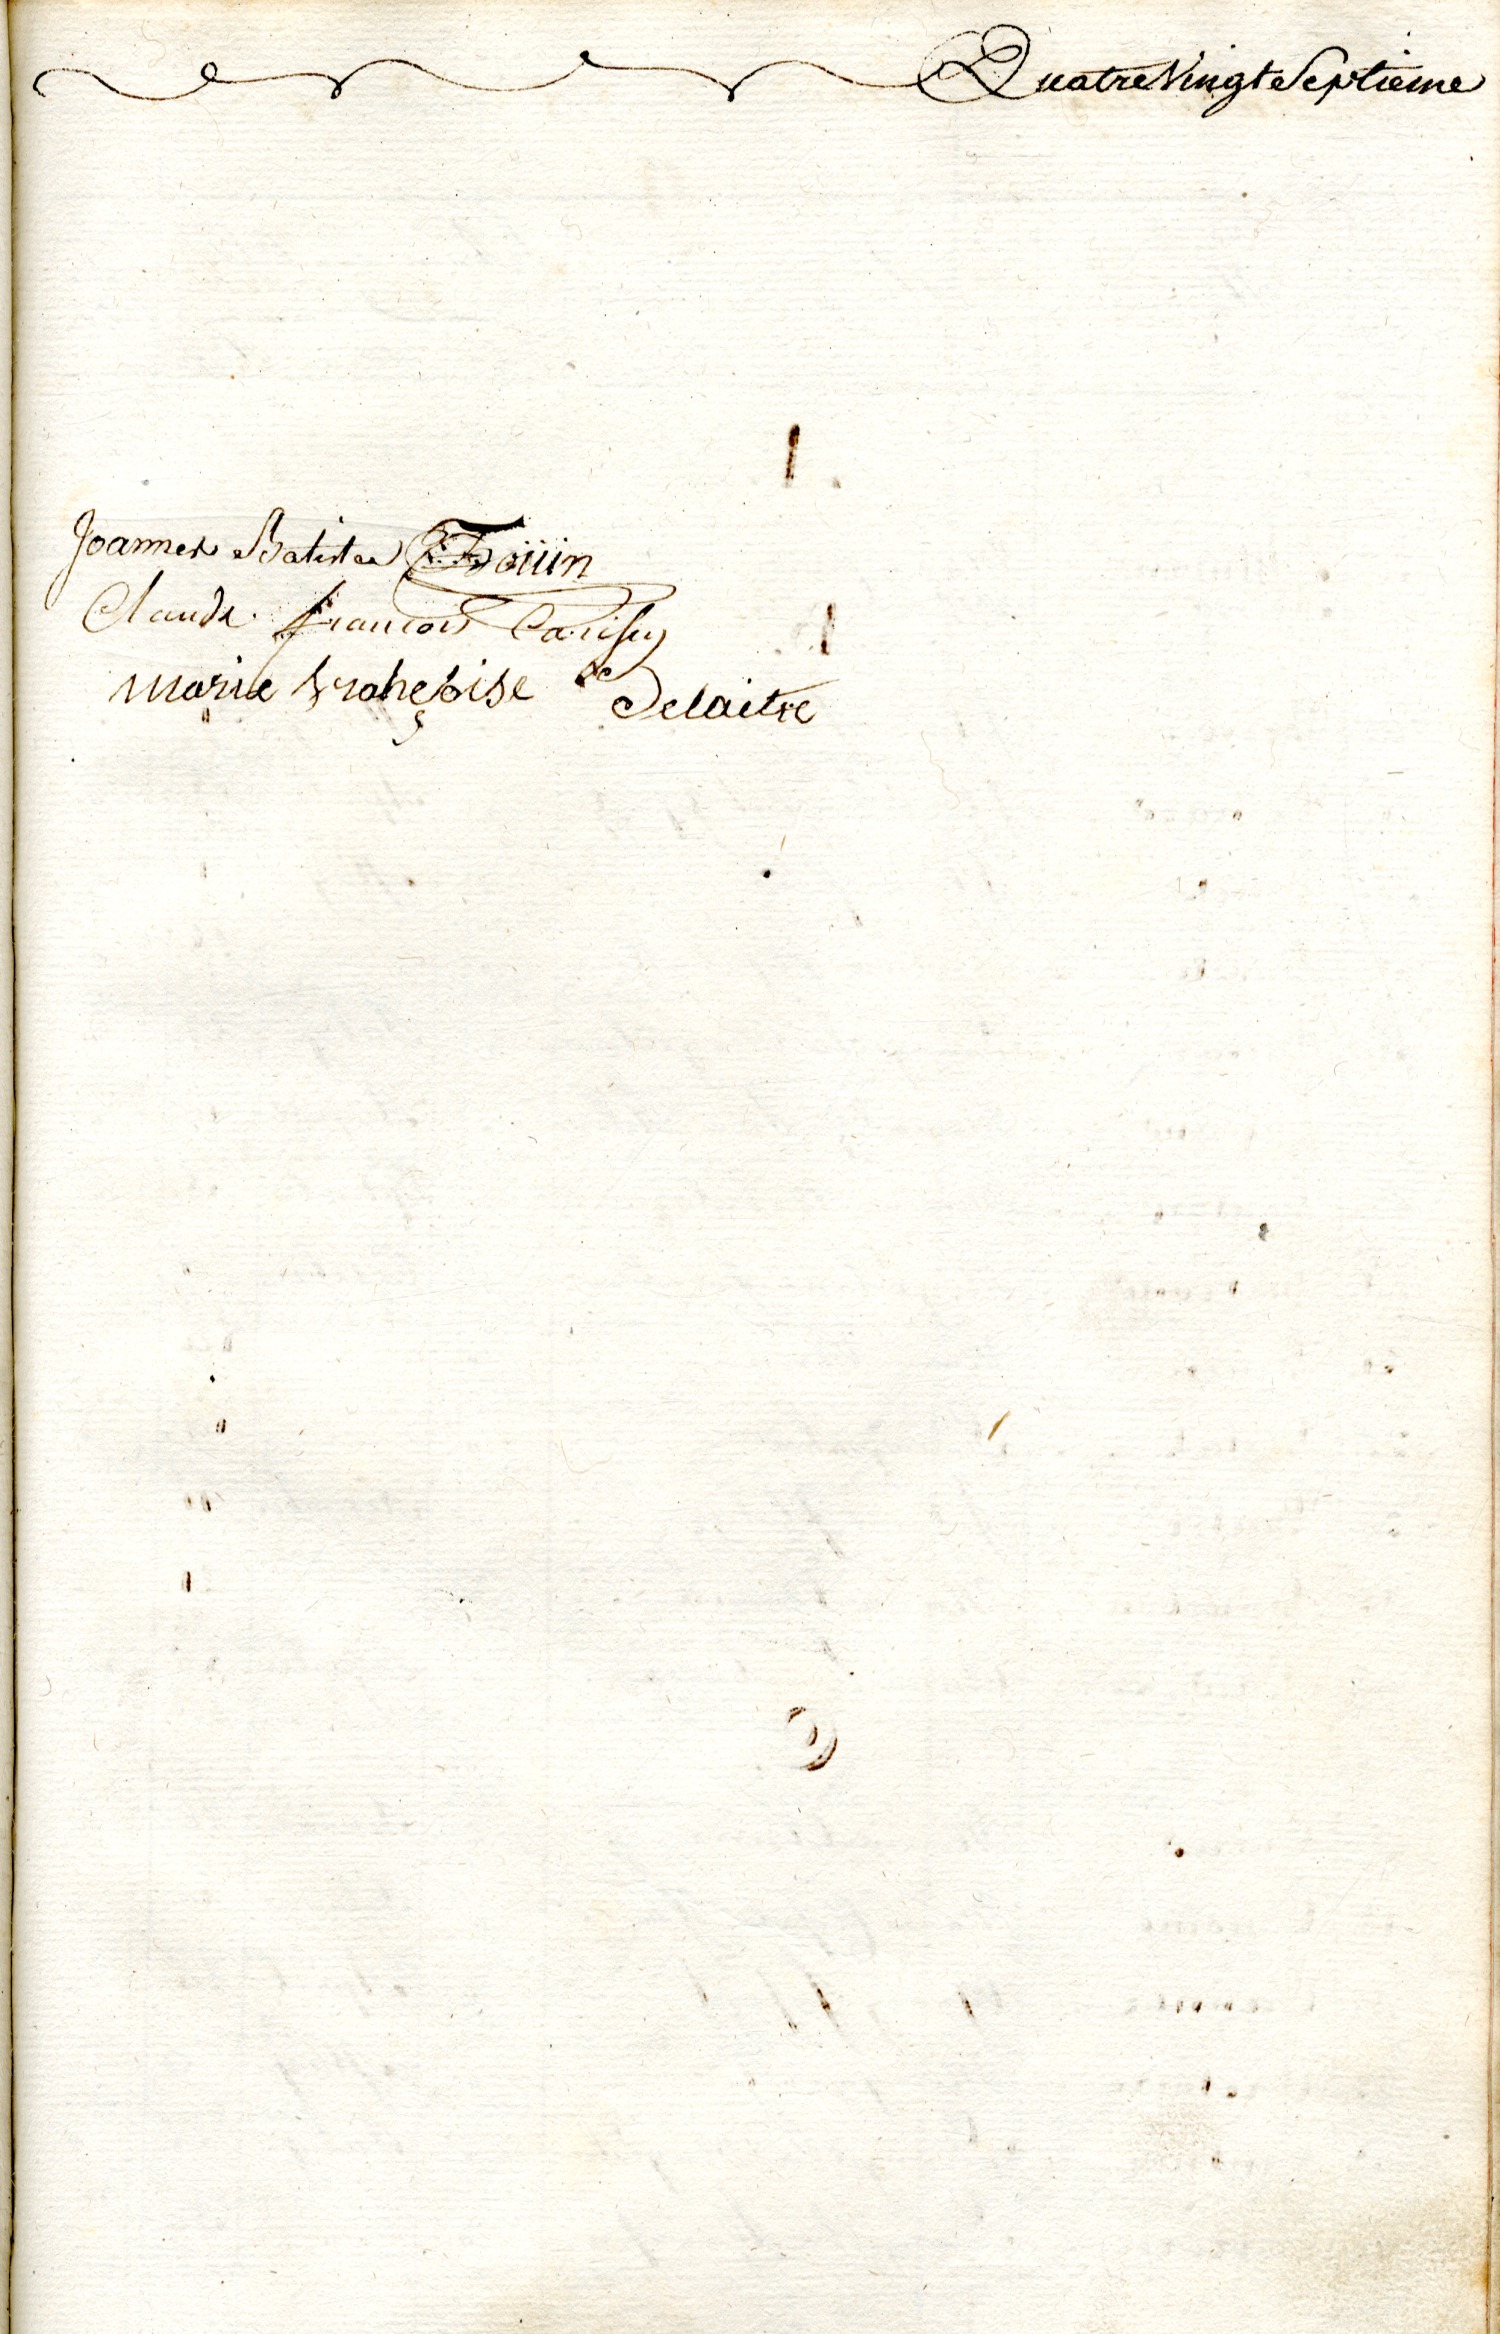 Quatre Vingt Septieme
Joannes Batista
Claude francois
Marie francoise Delaitre